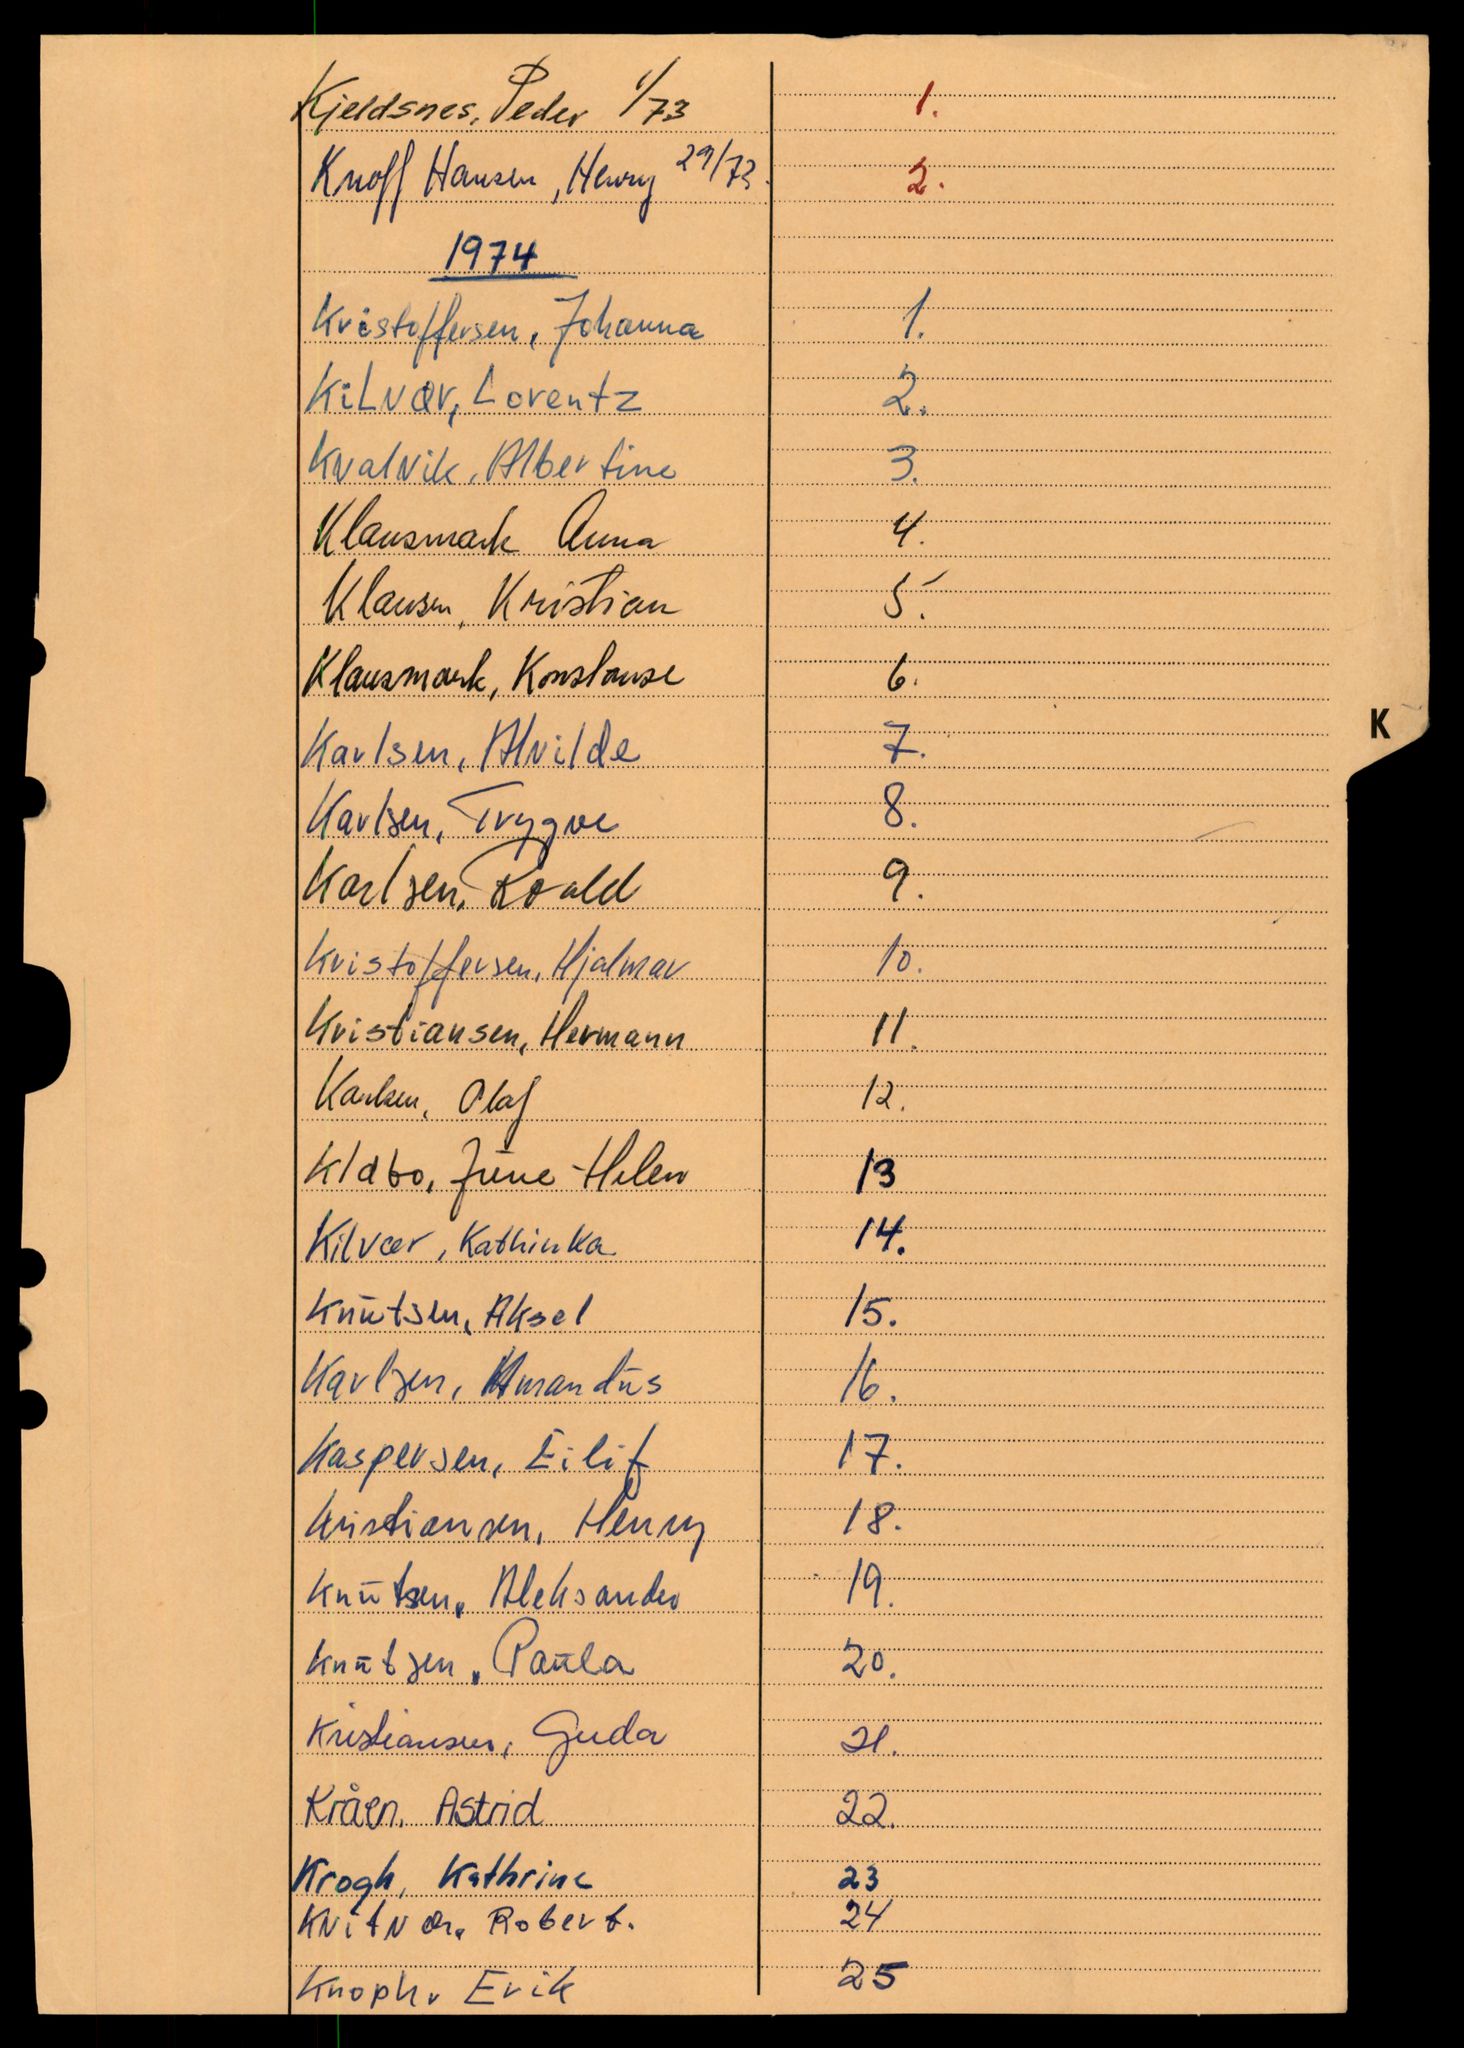 Kjeldsnes, Peder 1/73 1.
Knoff Hansen, Henry 29/73. 2.
1974
Kristoffersen, Johanna 1.
Kilvær, Lorentz 2.
Kvalvik, Albertine 3.
Klausmark Anna 4.
Klausen, Kristian 5.
Klausmark, Konstanse 6.
Karlsen, Alvilde 7.
Karlsen, Trygve 8.
Karlsen, Roald 9.
Kristoffersen, Hjalmar 10.
Kristiansen, Hermann 11.
Karlsen, Olaf 12.
Kldbo, June-Helen 13
Kilvær, Kathinka 14.
Knutsen, Aksel 15.
Karlsen, Amandus 16.
Kaspersen, Eilif 17.
Kristiansen, Henry 18.
Knutsen, Aleksander 19.
Knutsen, Paula 20.
Kristiansen, Guda 21.
Kråen, Astrid 22.
Krogh, Kathrine 23
Kvitvær, Robert. 24
Knoph, Erik 25
K